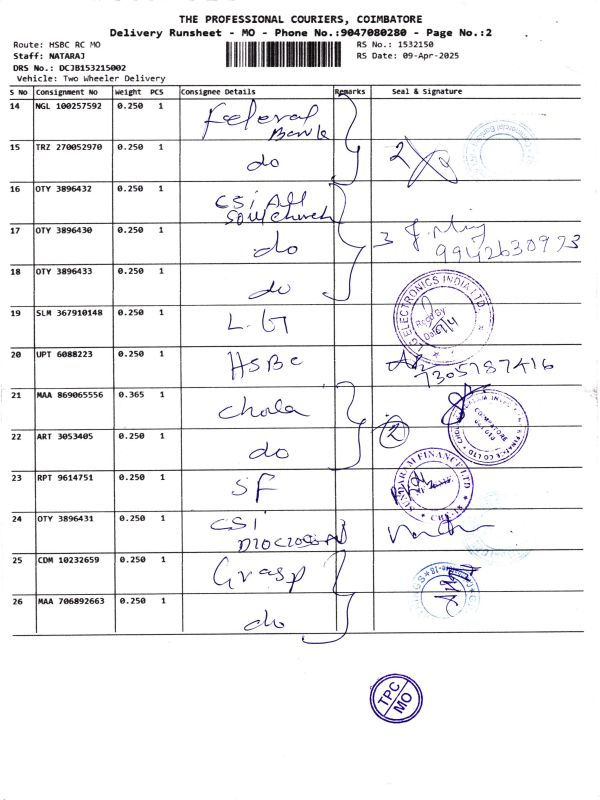 THE PROFESSIONAL COURIERS, COIMBATORE
Delivery Runsheet - MO - Phone No.:9047080280 - Page No.:2
Route: HSBC RC MO
RS No.: 1532150
Staff: NATARAJ
RS Date: 09-Apr-2025
DRS No.: DCJB153215002
Vehicle: Two Wheeler Delivery
S No Consignment No Weight PCS Consignee Details Remarks Seal & Signature
14 NGL 100257592 0.250 1 Federal Bank
15 TRZ 270052970 0.250 1 do 2
16 OTY 3896432 0.250 1 CSI All Soul church
17 OTY 3896430 0.250 1 do 3
9942630973
18 OTY 3896433 0.250 1 do
19 SLM 367910148 0.250 1 L.G LG ELECTRONICS INDIA LTD. Recd By Date
20 UPT 6088223 0.250 1 HSBC
7305787416
21 MAA 869065556 0.365 1 Chola
22 ART 3053405 0.250 1 do 2 COIMBATORE
23 RPT 9614751 0.250 1 SF SUNDARAM FINANCE LTD CBE-18
24 OTY 3896431 0.250 1 CSI
25 CDM 10232659 0.250 1 Grasp
26 MAA 706892663 0.250 1 do
TPC
MO